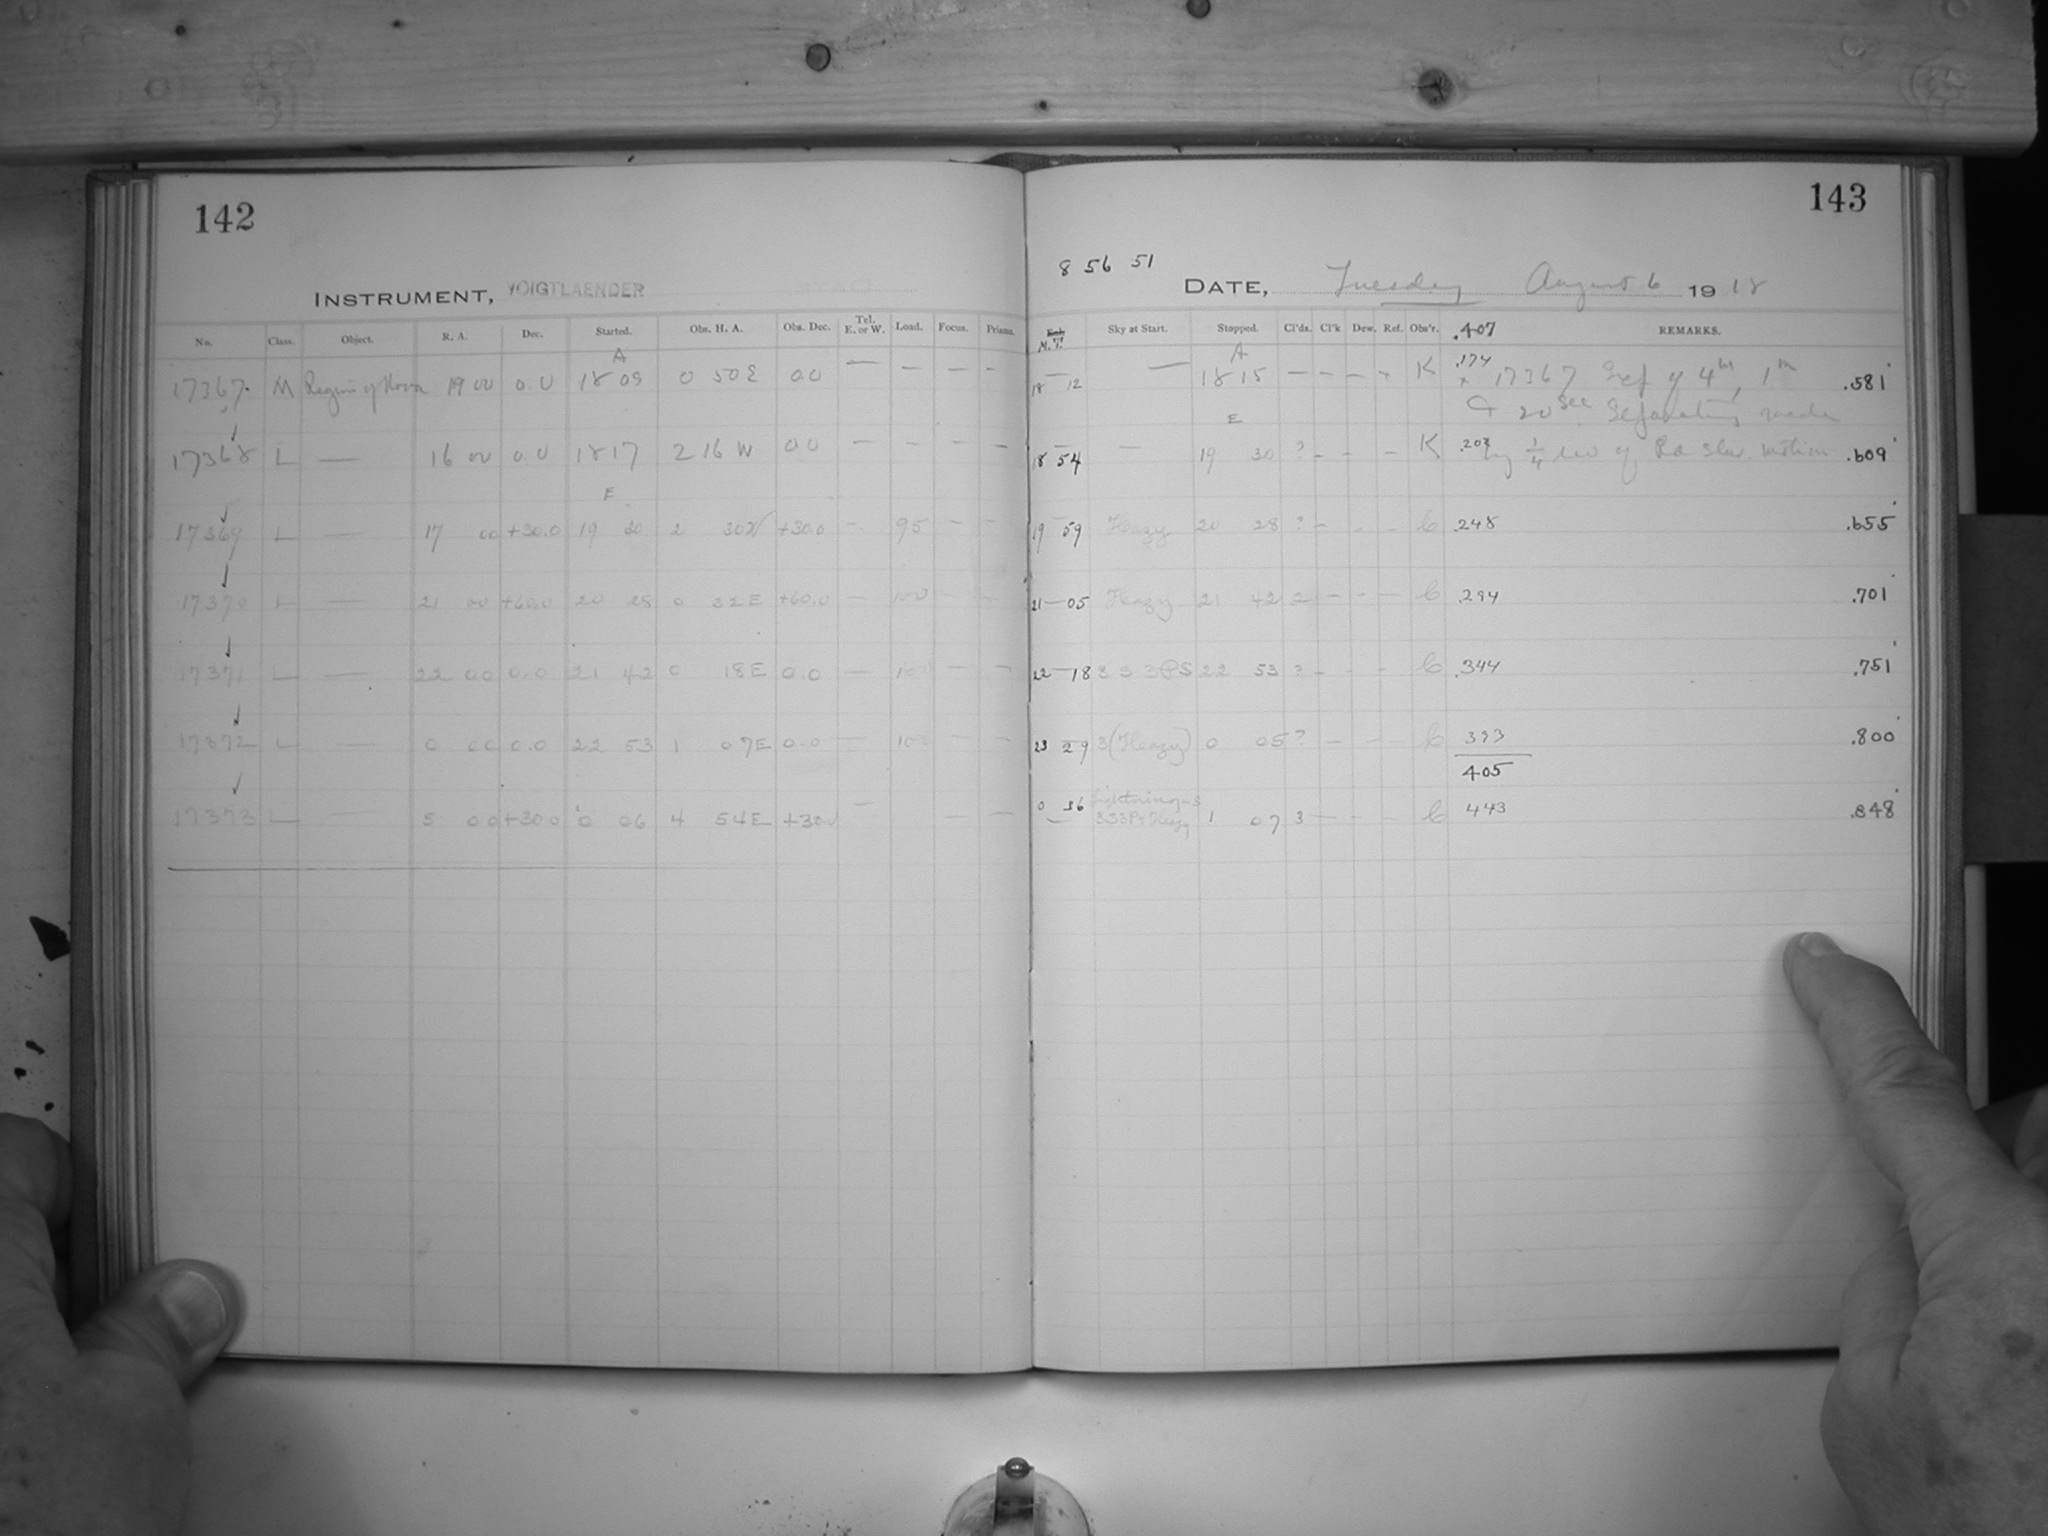 142
INSTRUMENT, VOIGTLAENDER
No. Class. Object. R. A. Dec. Started. Obs. H. A. Obs. Dec. Tel. E. or W. Load. Focus. Prisms.
A
17367 M Region of Nova 19 00 0.0 18 09 0 50 E 0.0 — — — —
17368 L — 16 00 0.0 18 17 2 16 W 0.0 — — — —
E
17369 L — 17 00 +30.0 19 30 2 30 W +30.0 — 95 — —
17370 L — 21 00 +60.0 20 28 0 32 E +60.0 — 100 — —
17371 L — 22 00 0.0 21 42 0 18 E 0.0 — 100 — —
17372 L — 0 00 0.0 22 53 1 07 E 0.0 — 100 — —
17373 L — 5 00 +30.0 0 06 4 54 E +30.0 — — —
143
8 56 51
DATE, Tuesday August 6 1918
M. T. Sky at Start. Stopped. Cl'ds. Cl'k Dew. Ref. Obs'r. .407 REMARKS.
A
18 12 — 18 15 — — — K .174 × 17367 of 4m, 1m .581
& 20 sec separating made
E
18 54 — 19 30 ? - - - K by 1/4 rev of Rd slow motion .609
19 59 Heazy 20 28 ? - - - C .248 .655
21 05 Heazy 21 42 2 - - - C .294 .701
22 18 3 3 3 PS 22 53 ? - - - C .344 .751
23 29 3 (Heazy) 0 05 ? - - - C 393 .800
405
0 36 Lightning 1 07 3 - - - C 443 .848